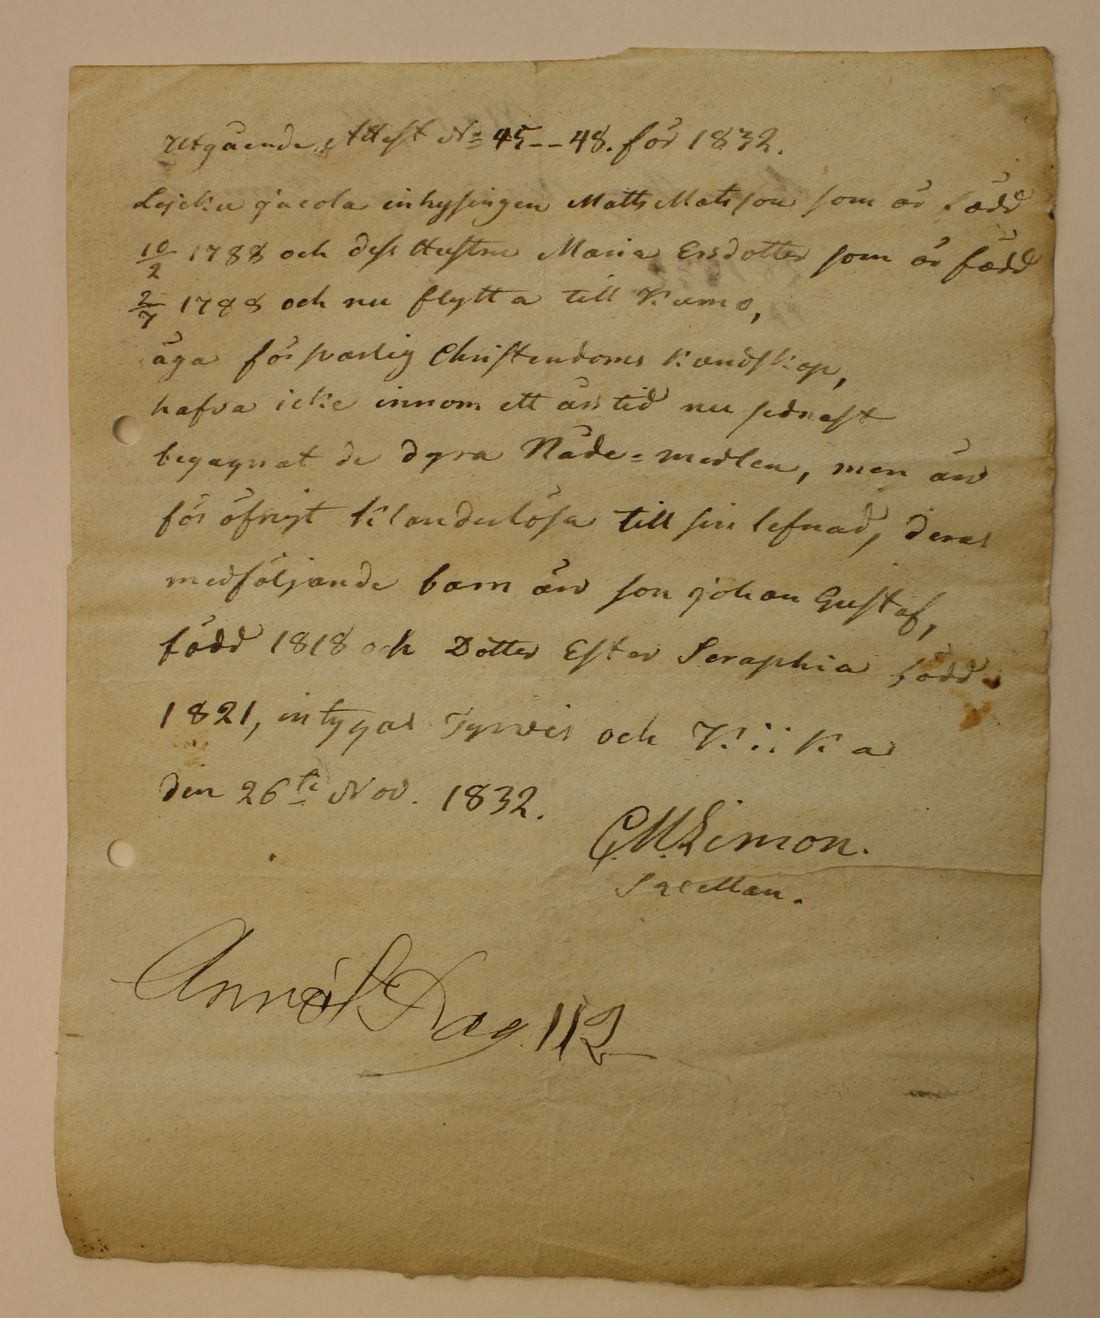 Utgående Attest No 45--48. för 1832.
inhysingen Matts Matsson som är född
10/2 1788 och dess Hustru Maria Ersdotter som är född
2/7 1788 och nu flytta till Kumo,
äga försvarlig Christendoms Kundskap,
hafva icke innom ett års tid nu sednast
begagnat de dyra Nåde=medlen, men äro
för öfrigt Klanderlösa till sin lefnad, deras
medföljande barn äro son Johan Gustaf,
född 1818 och Dotter Ester Seraphia född
1821, intygas Tyrvis och Kiika
den 26te Nov. 1832.
C. M. Limon.
Sacellan.
Pag. 112